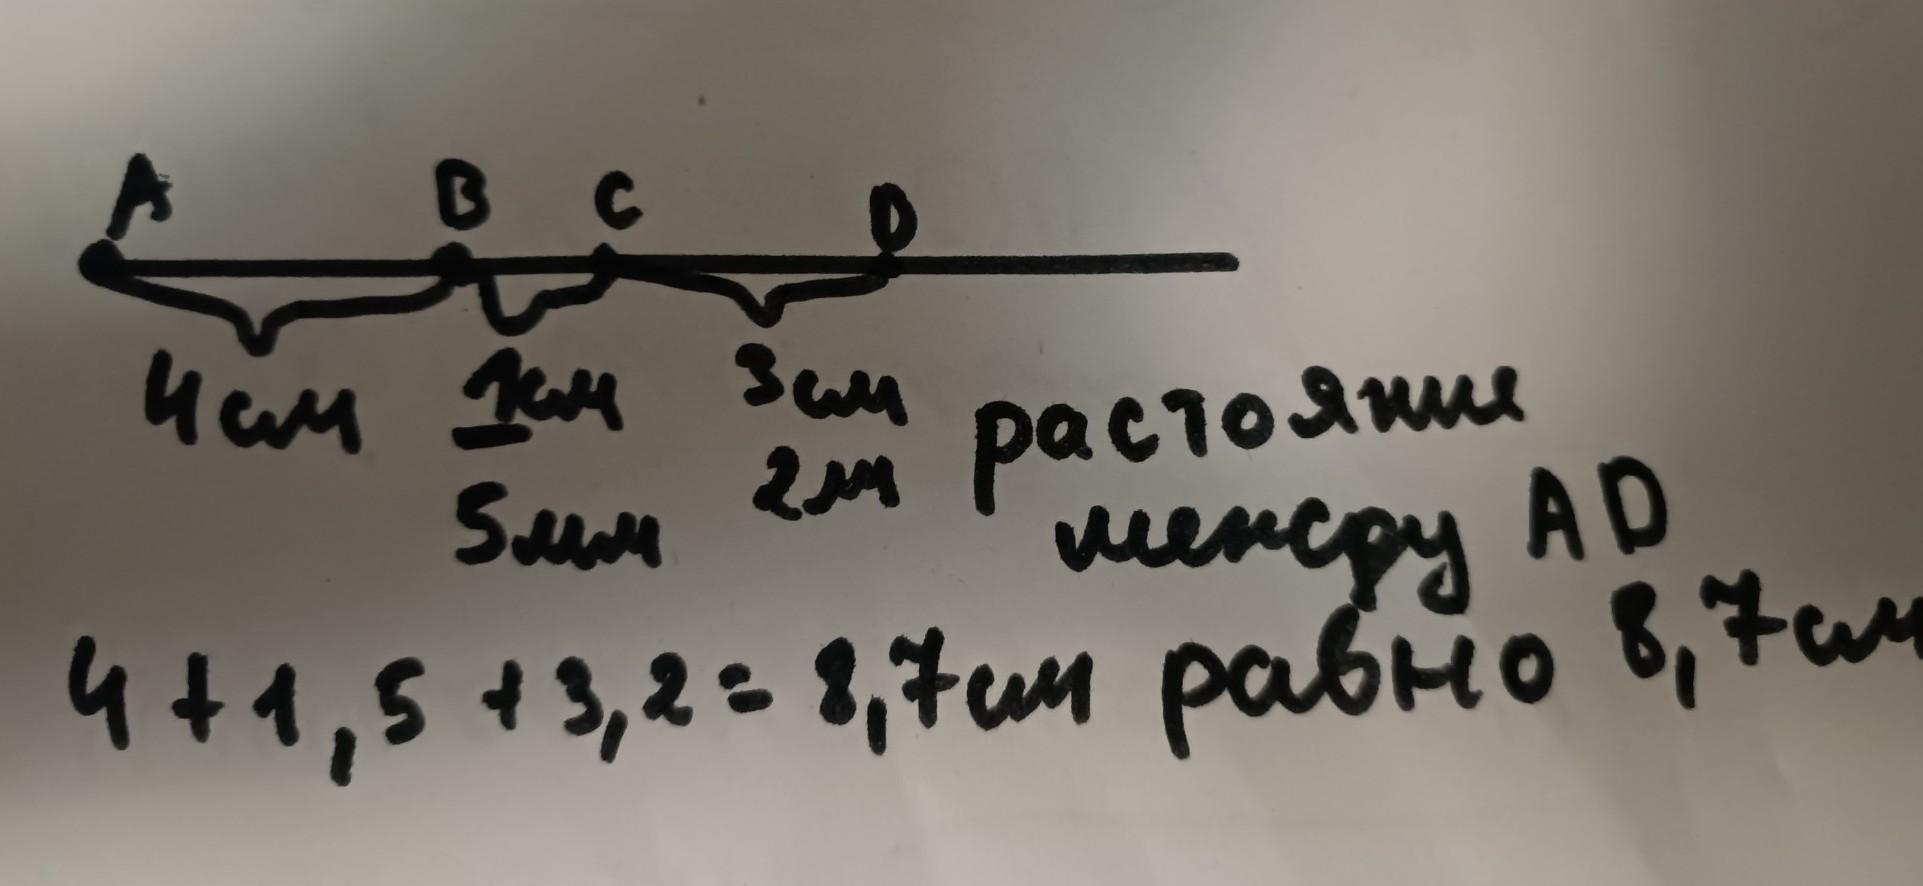 A B C D
4см 1см 3см
5мм 2м
растояние
между AD
4+1,5+3,2=8,7см равно 8,7см